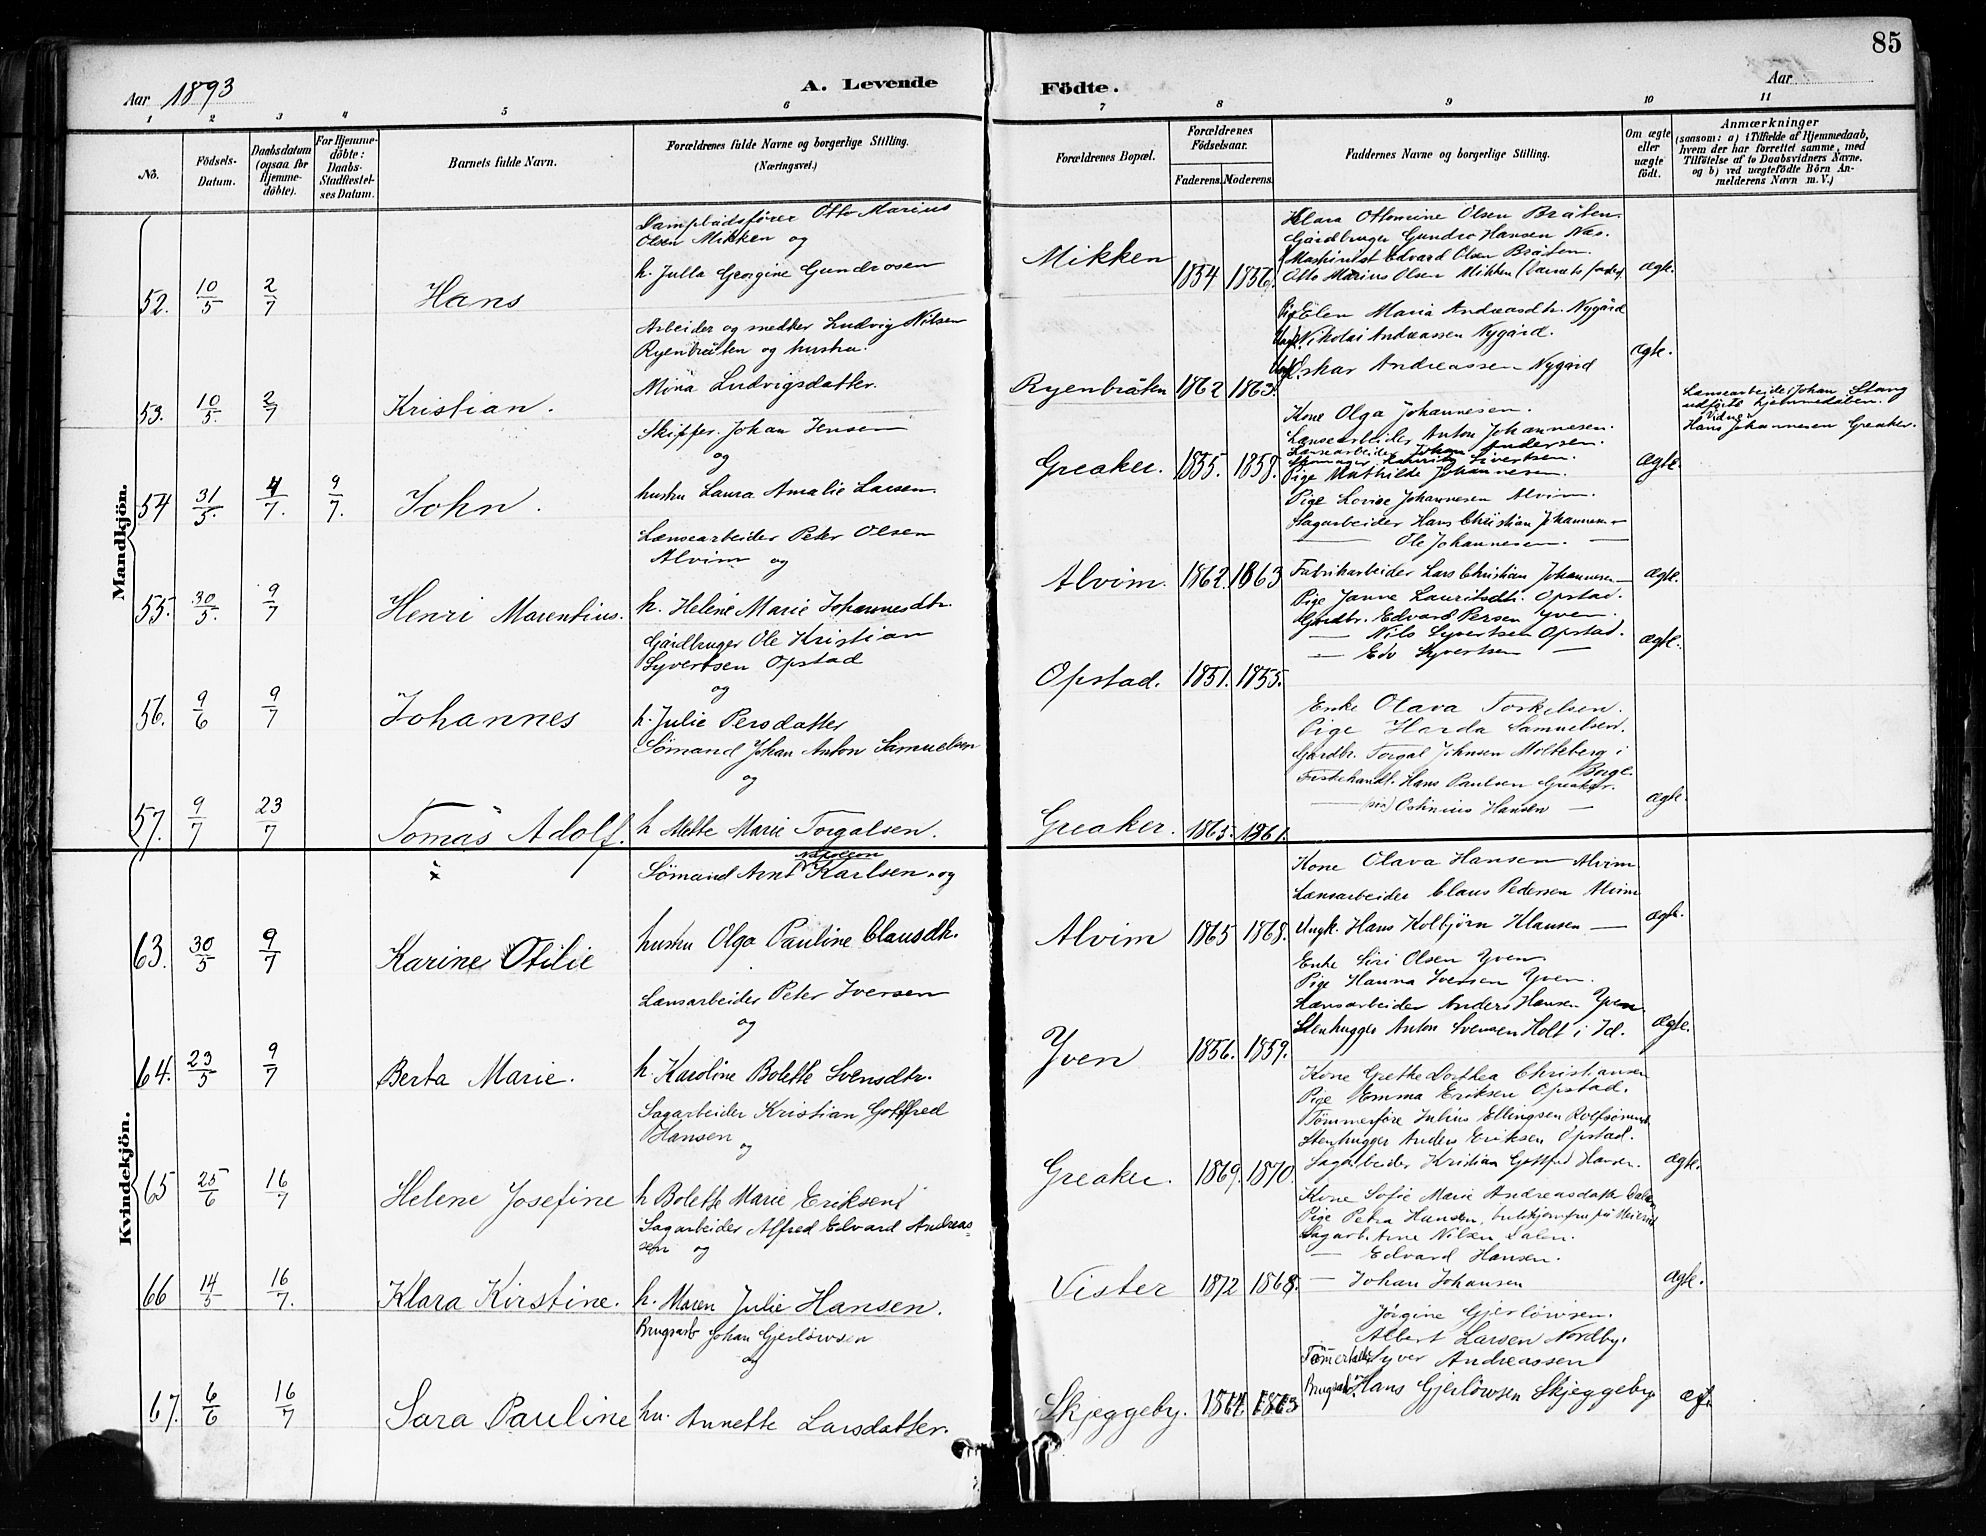 85
Aar 1893
A. Levende
Födte.
Aar
1 2 3 4 5 6 7 8 9 10 11
No.
Födsels-Datum.
Daabsdatum (ogsaa for Hjemmedöbte).
For Hjemmedöbte: Daabs-Stadfestelses Datum.
Barnets fulde Navn.
Forældrenes fulde Navne og borgerlige Stilling.
(Næringsvei.)
Forældrenes Bopæl.
Forældrenes Födselsaar.
Faderens. Moderens.
Faddernes Navne og borgerlige Stilling.
Om ægte eller uægte födt.
Anmærkninger
(saasom: a) i Tilfælde af Hjemmedaab, hvem der har forrettet samme, med Tilföielse af to Daabsvidners Navne. og b) ved uægtefödte Börn Anmelderens Navn m. V.)
Mandkjön.
52. 10/5 2/7 Hans
Dampbådsfører Otto Marius
Olsen Mikken og
h. Julla Georgine Gundrosen
Mikken 1854 1856.
Klara Ottomine Olsen Bråten.
Gårdbruger Gundro Hansen Næs.
Maskinist Edvard Olsen Bråten.
Otto Marius Olsen Mikken (barnets fader)
ægte.
53. 10/5 2/7 Kristian.
Arbeider og medker Ludvig Nilsen
Ryenbråten og hustru.
Mina Ludvigsdatter.
Ryenbråten 1862 1863.
Pige Elen Maria Andreasdtr. Nygård
Ungk. Nikolai Andreassen Nygård.
Ungk. Oskar Andreassen Nygård
ægte.
54 31/5. 4/7. 9/7. John.
Skipper Johan Jensen
og
hustru Laura Amalie Larsen.
Greaker. 1855. 1858.
Kone Olga Johannesen.
Lænsearbeider Anton Johannesen.
Lænsearbeider Johan Andersen.
Sivertsen.
Pige Mathilde Johannesen.
ægte.
Lænsearbeider Johan Stang
udførte hjemmedåben.
Vidne
Hans Johannesen Greaker.
55. 30/5. 9/7 Henri Marentius.
Lænsearbeider Peter Olsen
Alvim og
h. Helene Marie Johannesdtr.
Alvim. 1862. 1863
Pige Lovise Johannesen Alvim.
Sagarbeider Hans Christian Johannesen —
— Ole Johannesen. —
Fabrikarbeider Lars Christian Johannesen —
ægte.
56. 9/6 9/7 Johannes
Gårdbruger Ole Kristian
Syvertsen Opstad
og
h. Julie Persdatter
Opstad. 1851. 1855.
Pige Janne Lauritsdtr. Opstad.
Gardbr. Edvard Persen Yven.
— Nils Syvertsen Opstad.
— Edv Syvertsen —
ægte.
57. 9/7 23/7 Tomas Adolf.
Sømand Johan Anton Samuelsen
og
h Mette Marie Torgalsen.
Greaker. 1865. 1861.
Enke Olava Torkelsen.
Pige Harda Samuelsen.
Gårdbr. Torgal Johnsen Molteberg i
Borge.
Fiskehandl. Hans Paulsen Greaker.
— Ostinius Hansen —
ægte.
Kvindekjön.
63. 30/5 9/7 Karine Otilie
Napoleon
Sømand Arnt Karlsen. og
hustru Olga Pauline Clausdtr.
Alvim 1865 1868.
Kone Olava Hansen Alvim
Lænsarbeider Claus Pedersen Alvim
Ungk. Hans Kolbjørn Klausen —
ægte.
64. 23/5 9/7 Berta Marie.
Lænsarbeider Peter Iversen
og
h. Karoline Bolette Svensdtr.
Yven 1856. 1859.
Enke Siri Olsen Yven.
Pige Hanna Iversen Yven.
Lænsarbeider Anders Hansen Yven
Stenhugger Anton Svensen Holt i Id.
ægte.
65 25/6 16/7 Helene Josefine
Sagarbeider Kristian Gottfred
Hansen og
h Bolette Marie Eriksen
Greaker. 1869. 1870.
Kone Grethe Dorthea Christiansen
Pige Emma Eriksen Opstad.
Tömmerföre Julius Ellingsen
Stenhugger Anders Eriksen Opstad.
Sagarbeider Kristian Gottfred Hansen.
ægte.
66 14/5 16/7. Klara Kirstine.
Sagarbeider Alfred Edvard Andreas-
sen og
h. Maren Julie Hansen.
Vister 1872 1868.
Kone Sofie Marie Andreasdatter Dalen
Pige Petra Hansen,
Sagarb. Arne Nilsen Dalen.
— Edvard Hansen.
— Johan Johansen
ægte.
67. 6/6 16/7 Sara Pauline
Brugsarb Johan Gjerløwsen
og
hu. Annette Larsdatter.
Skjeggeby.
Jørgine Gjerløwsen.
Albert Larsen Nordby.
Syver Andreassen
Brugsarb. Hans Gjerløwsen Skjeggeby